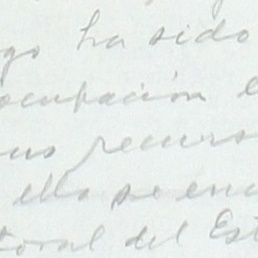 go ha sido
ocupación e
us recurs
ella se en
toral del Est